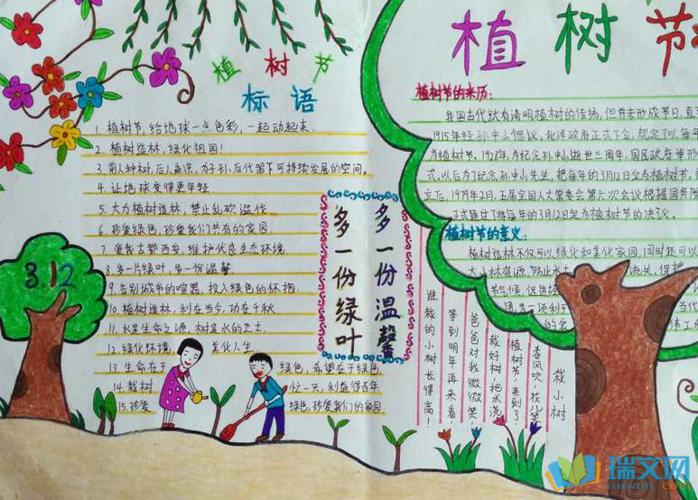 植树节
标语
1. 植树节，给地球一点色彩，一起动起来.
2. 植树造林，绿化祖国！
3. 前人种树，后人乘凉，为子孙后代留下可持续发展的空间，
4. 让地球变得更年轻
5. 大力植树造林，禁止乱砍滥伐
6. 珍爱绿色，珍爱我们共有的家园
7. 爱我古都西安，维护优良生态环境
8. 多一片绿叶，多一份温馨
9. 告别城市的喧嚣，投入绿色的怀抱
10. 植树造林，利在当今，功在千秋
11. 水是生命之源，树是水的卫士.
12. 绿化环境，美化人生
13. 生命在于绿色，希望在于绿色
14. 栽树 一天，利益得百年
15. 珍爱绿色，珍爱我们的家园
3.12
多一份温馨
多一份绿叶
植树节
植树节的来历：
我国古代就有清明植树的
1915年 孙中山倡议，北洋政府正式下令，规定以每年
为植树节，1928年，为纪念孙中山逝世三周年，国民政府
式，以后为了纪念孙中山先生，把每年的3月12日定为植树节，
1979年2月，五届全国人大常委会第六次会议根据国务
把每年的3月12日定为植树节的决议.
植树节的意义：
植树造林不仅可以绿化和美化家园，同时还可以
栽小树
春风吹，花儿笑
植树节，来到了.
栽好树，把水浇，
爸爸对我微微笑.
等到明年再来看，
谁栽的小树长得高！
瑞文网
ruiwen.com